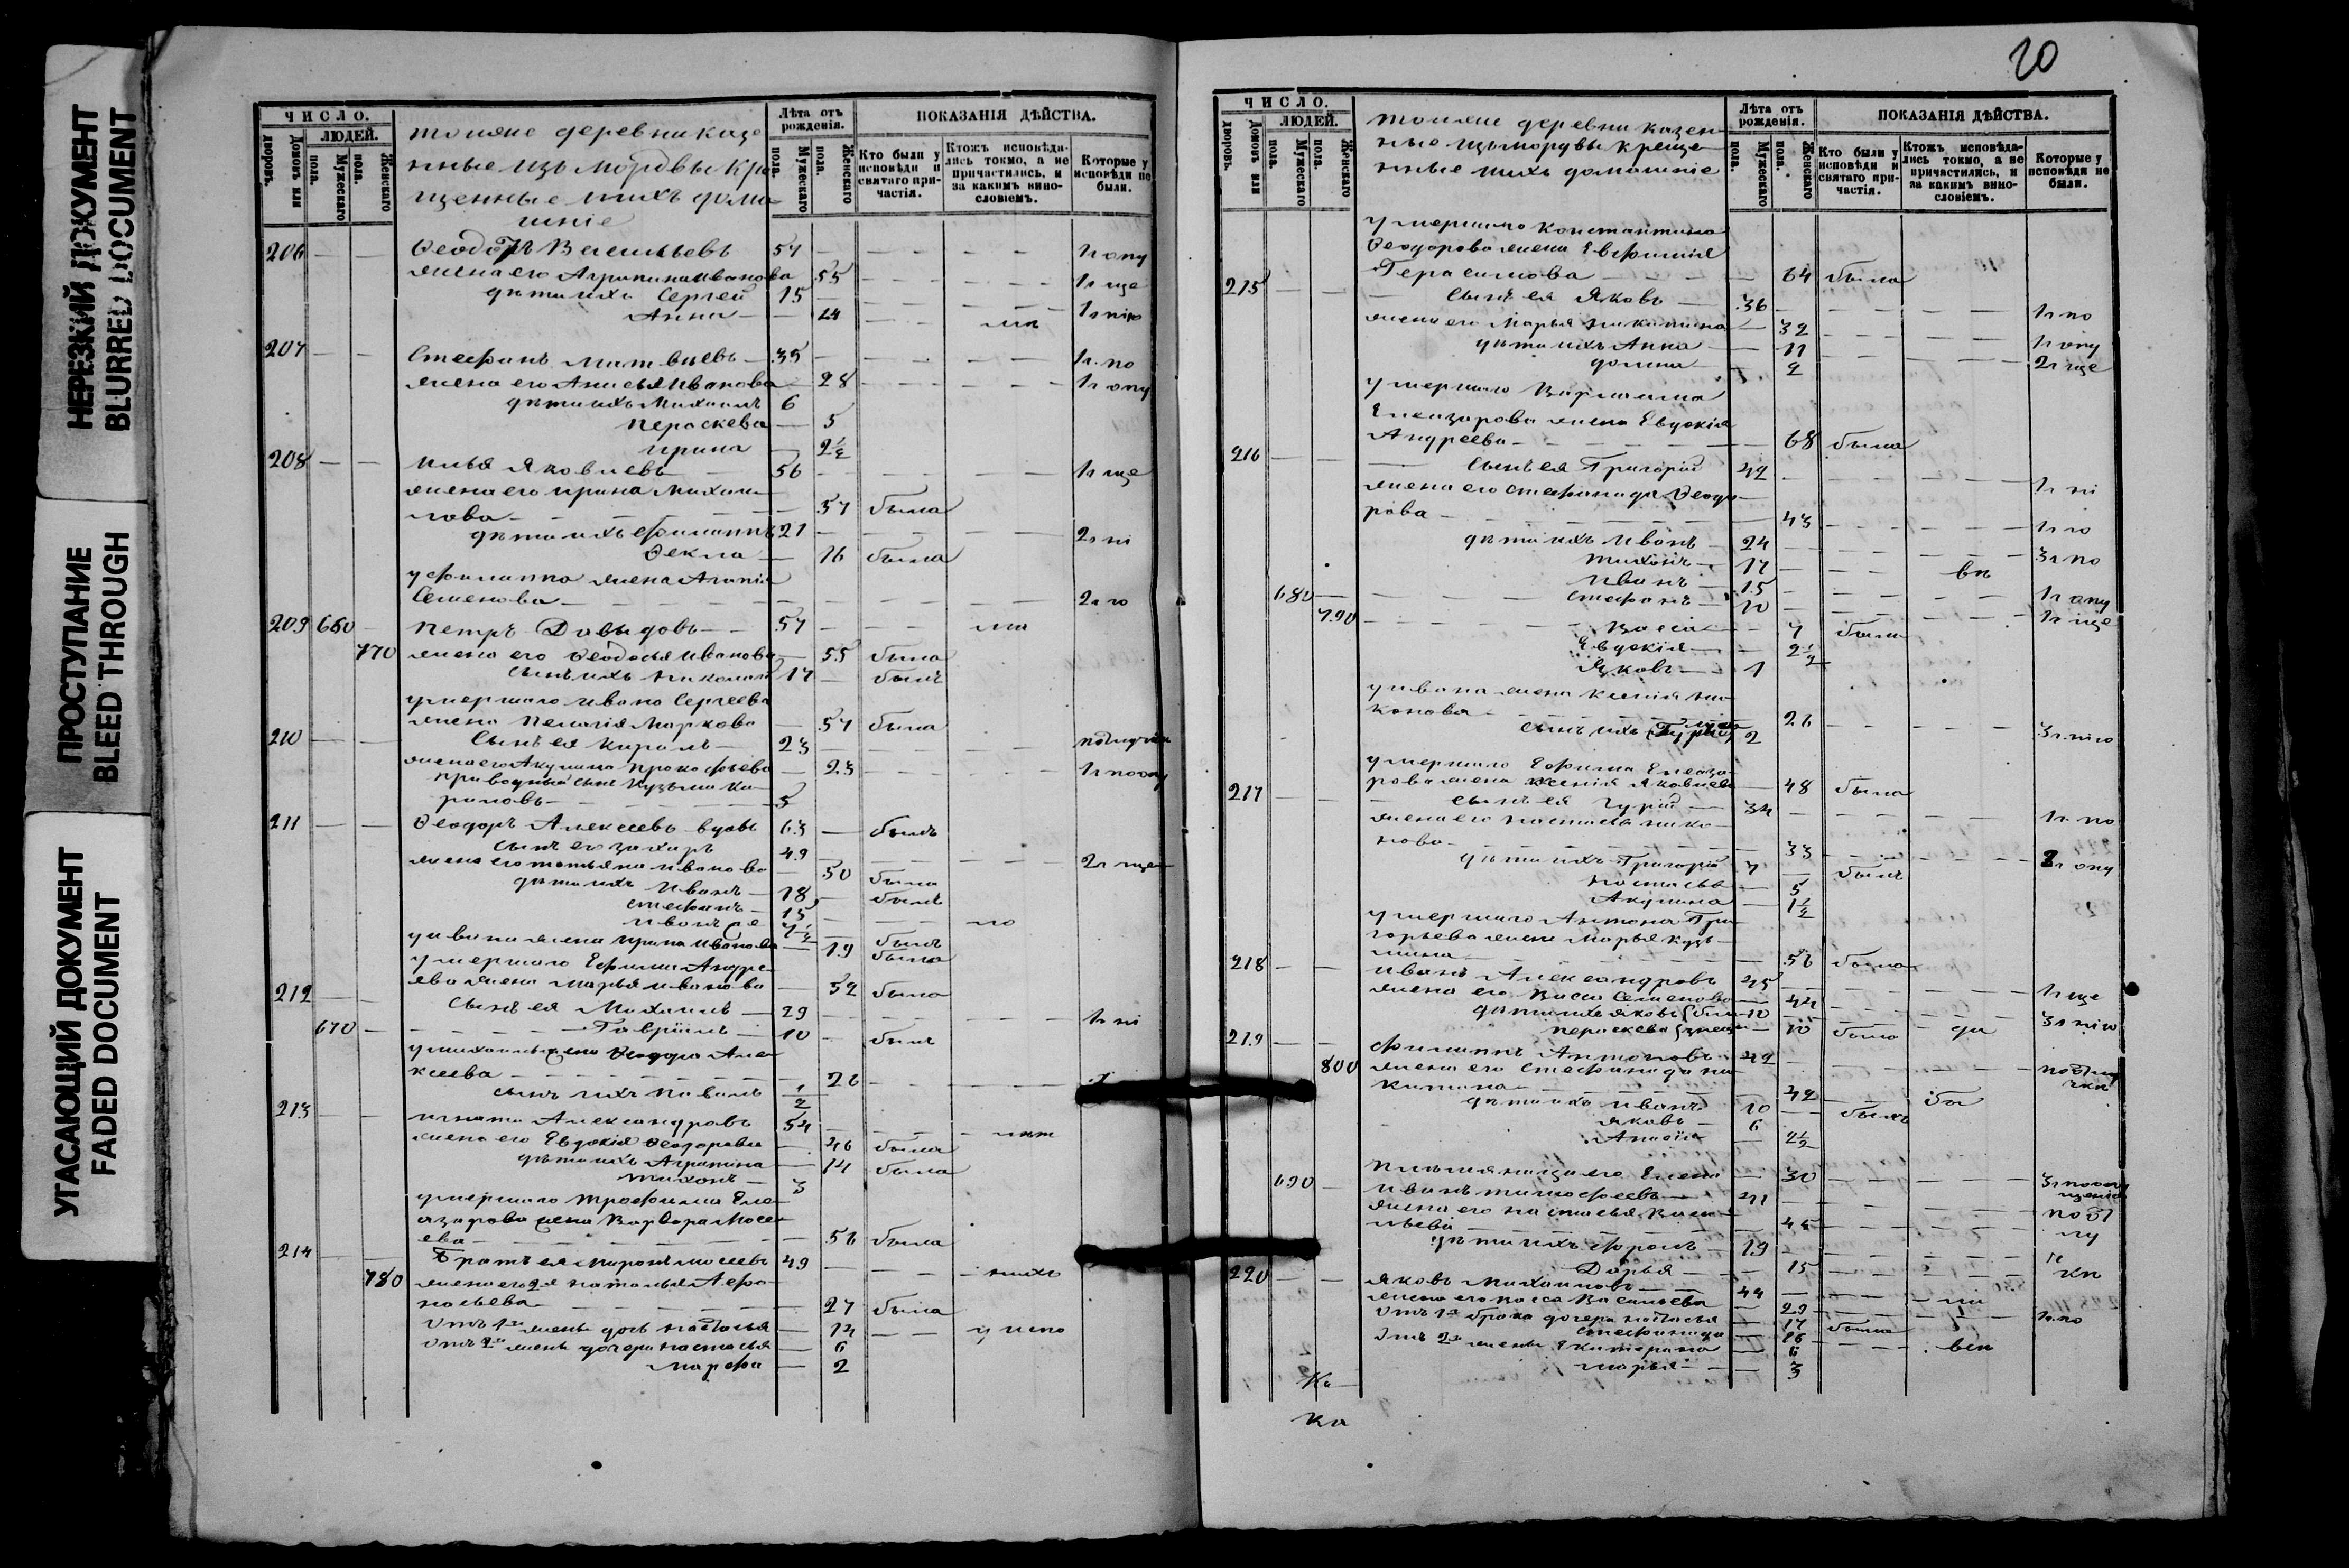 НЕРЕЗКИЙ ДОКУМЕНТ
BLURRED DOCUMENT
ПРОСТУПАНИЕ
BLEED THROUGH
УГАСАЮЩИЙ ДОКУМЕНТ
FADED DOCUMENT
ЧИСЛО.
Домовъ или дворовъ.
ЛЮДЕЙ.
Мужескаго пола.
Женскаго пола.
тояже деревни казе
нные изъ мордвы кре
щенные и ихъ дома
шніе
Лѣта отъ рожденія.
Мужескаго пола.
Женскаго пола.
ПОКАЗАНІЯ ДѢЙСТВА.
Кто были у исповѣди и святаго причастія.
Ктожъ исповѣдались токмо, а не причастились, и за какимъ винословіемъ.
Которые у исповѣди не были.
206 Ѳеодоръ Васильевъ 57 1 г опу
жена его Агрипина Иванова 55 1 г ще
дѣти ихъ Сергей 15 1 г нію
Анна 24
207 Стефанъ Матвѣевъ 35 1 г. по
жена его Анисья Иванова 28 1 г опу
дѣти ихъ Михаилъ 6
Параскева 5
Ирина 2½
208 Илья Яковлевъ 56 1 г ще
жена его Ирина Михаи
лова 57 была
дѣти ихъ Филиппъ 21 2 г ні
Ѳекла 16 была
у Филиппа жена Агапія
Семенова 2 г ю
209 660 Петръ Давыдовъ 57
770 жена его Ѳеодосья Иванова 55 была
сынъ ихъ Николай 17 былъ
умершаго Ивана Сергеева
жена Пелагія Маркова 57 была
210 Сынъ ея Кирилъ 23
жена его Акулина Прокофьева 23
приводный сынъ Кузьма Ки
риловъ 5
211 Ѳеодоръ Алексеевъ вдовъ 63 былъ
сынъ его Захаръ 49 2 г ще
жена его Татьяна Иванова 50 была
дѣти ихъ Иванъ 18 былъ
Стефанъ 15
Иванъ же
у Ивана жена Ирина Иванова 19 была
умершаго Ефима Андре
ева жена Марья Иванова 52 была
212 Сынъ ея Михаилъ 29 1 г ні
670 Гавріилъ 10 былъ
у Михаила жена Ѳеодора Але
ксеева 26
сынъ ихъ Павелъ ½
213 Игнатій Александровъ 54
жена его Евдокія Ѳеодорова 46 была
дѣти ихъ Агрипина 14 была
Тихонъ 3
умершаго Трофима Еле
азарова жена Варвара Мосе
ева 56 была
214 Братъ ея Миронъ Мосеевъ 49
780 жена его 2я Наталья Афа
насьева 27 была
Отъ 1й жены дочь Настасья 14
Отъ 2й жены дочери Настасья 6
Марфа 2
20
ЧИСЛО.
Домовъ или дворовъ.
ЛЮДЕЙ.
Мужескаго пола.
Женскаго пола.
тояже деревни казен
ные изъ мордвы креще
нные и ихъ домашніе
Лѣта отъ рожденія.
Мужескаго пола.
Женскаго пола.
ПОКАЗАНІЯ ДѢЙСТВА.
Кто были у исповѣди и святаго причастія.
Ктожъ исповѣдались токмо, а не причастились, и за какимъ винословіемъ.
Которые у исповѣди не были.
умершаго Константина
Ѳеодорова жена Евфимія
Герасимова 64 была
215 Сынъ ея Яковъ 36 1 г по
жена его Марья Никитина 32 1 г опу
дѣти ихъ Анна 11 2 г ще
Домна 2
умершаго Варлаама
Елиазарова жена Евдокія
Андреева 68 была
216 Сынъ ея Григорій 42 1 г ні
жена его Стефанида Ѳеодо
рова 43 1 г ю
дѣти ихъ Иванъ 24 3 г по
Тихонъ 17
Иванъ 15 1 г опу
680 Стефанъ 10 1 г ще
790 Васса 7 была
Евдокія 2½
Яковъ 1
у Ивана жена Ксенія Ни
конова 26 3 г. нію
сынъ ихъ 2
умершаго Ефима Елеаза
рова жена Ксенія Яковлева 48 была
217 сынъ ея Гурій 34 1 г. по
жена его Настасья Нико
нова 33 опу
дѣти ихъ Григорій 7 былъ
Настасья 5
Акулина 1½
умершаго Антона Гри
горьева жена Марья Кузь
мина 56 была
218 Иванъ Александровъ 45 1 г ще
жена его Васса Семенова 44 3 г нію
дѣти ихъ Яковъ 10
Параскева 10 была
219 Филиппъ Антоновъ 42
800 жена его Стефанида Ни
китина 42
дѣти ихъ Иванъ 10 былъ
Яковъ 6
2½
племянница его Елена 30
690 Иванъ Тимофеевъ 41
жена его Настасья Васи
льева 45
дѣти ихъ Фролъ 19
Дарья 15
220 Яковъ Михаиловъ 44
жена его Васса Васильева 29 1 г. по
Отъ 1го брака дочери Настасья 17 была
Стефанида 16
Отъ 2й жены Екатерина 6
Марья 3